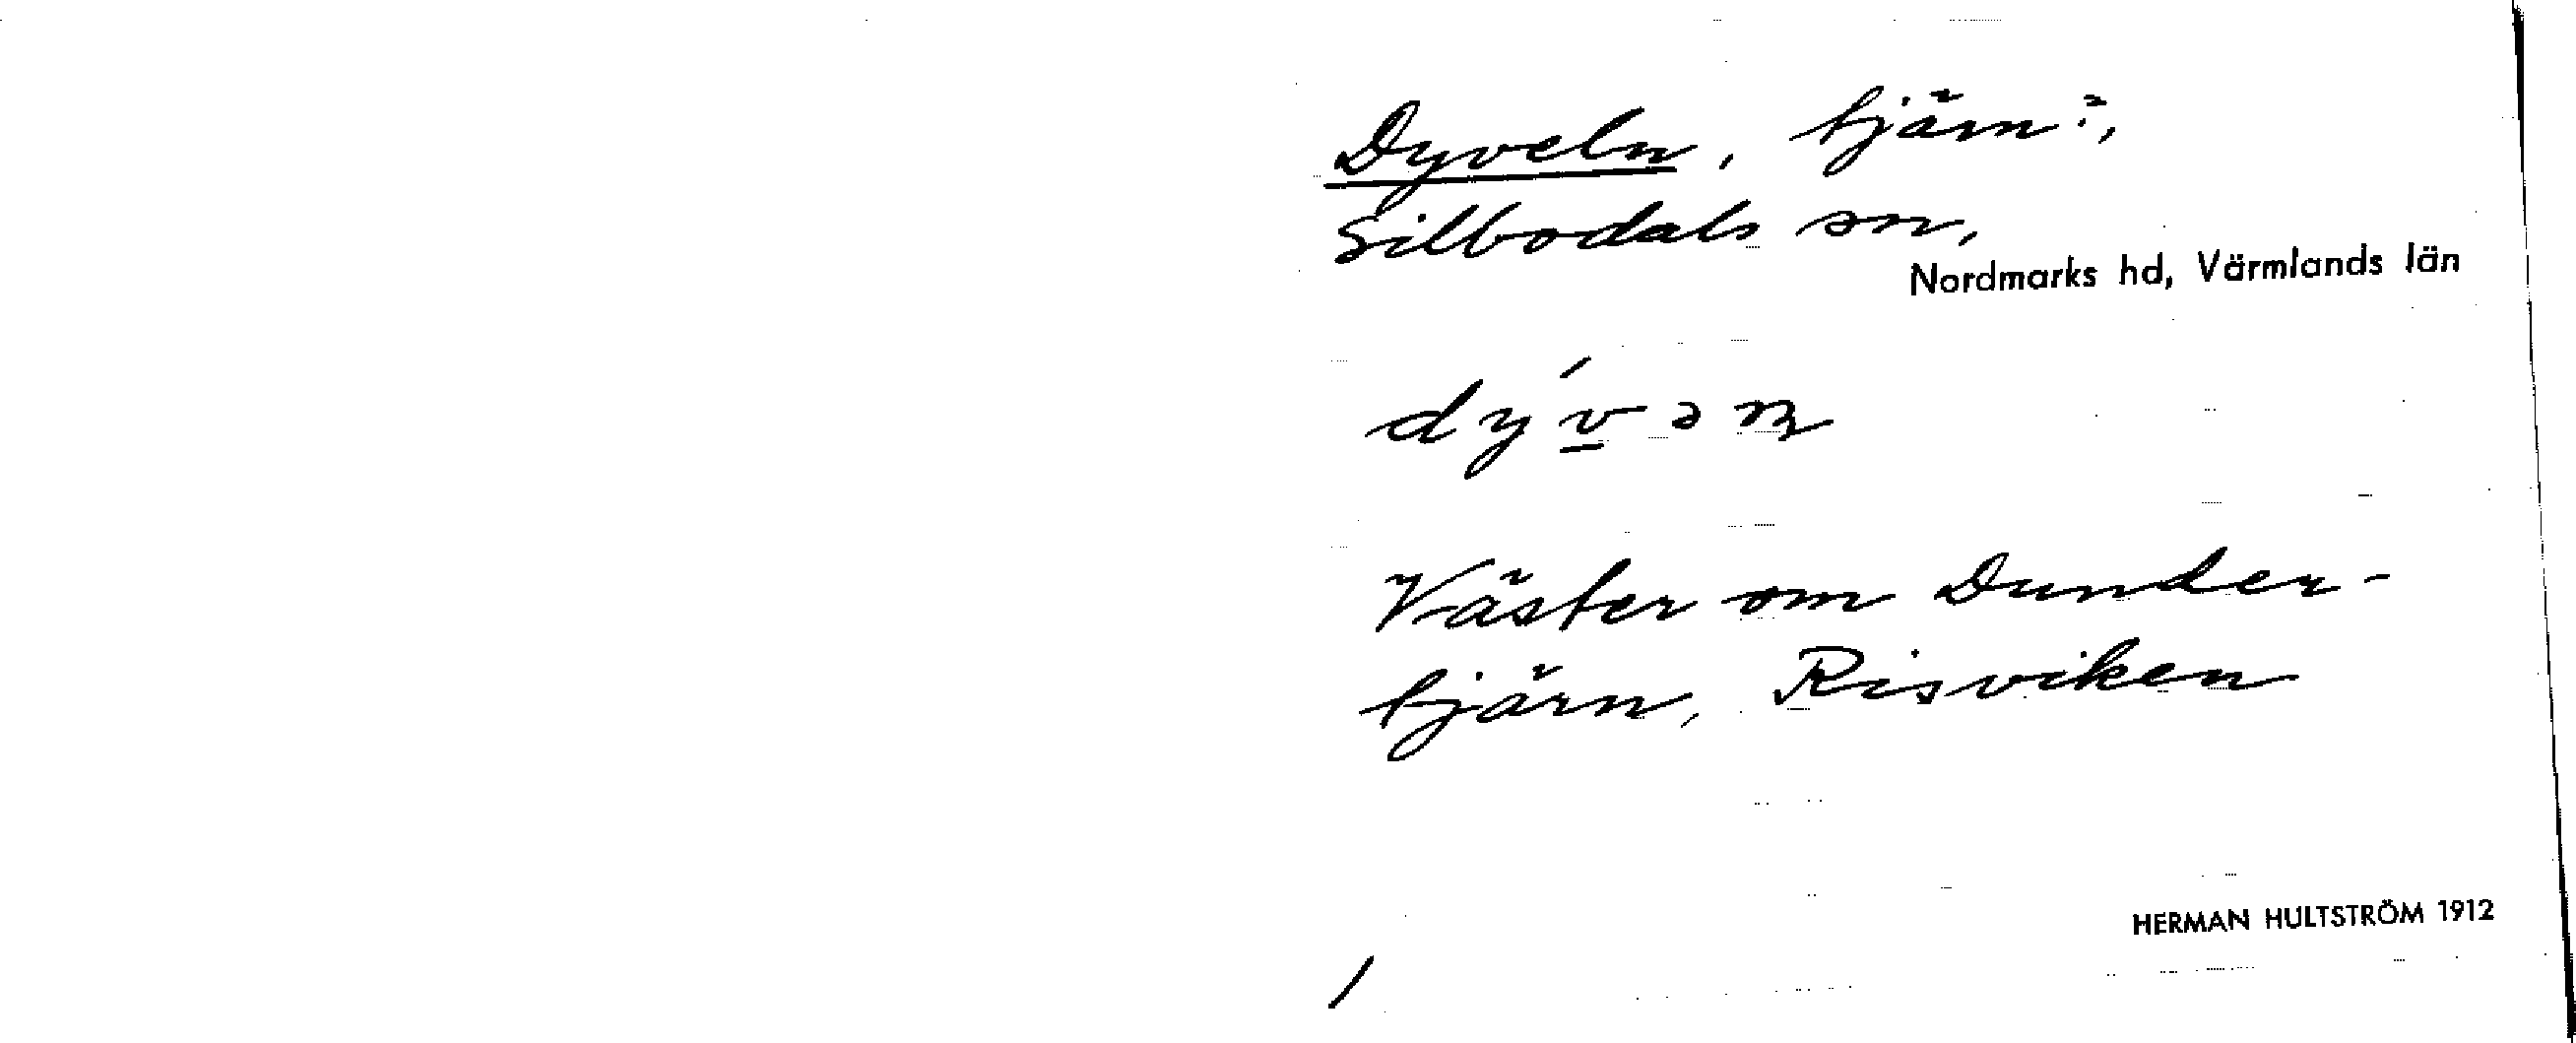 Dyveln, tjärn?,
Silbodals sn,
Nordmarks hd, Värmlands län
Väster om Dunder-
tjärn, Risviken
HERMAN HULTSTRÖM 1912